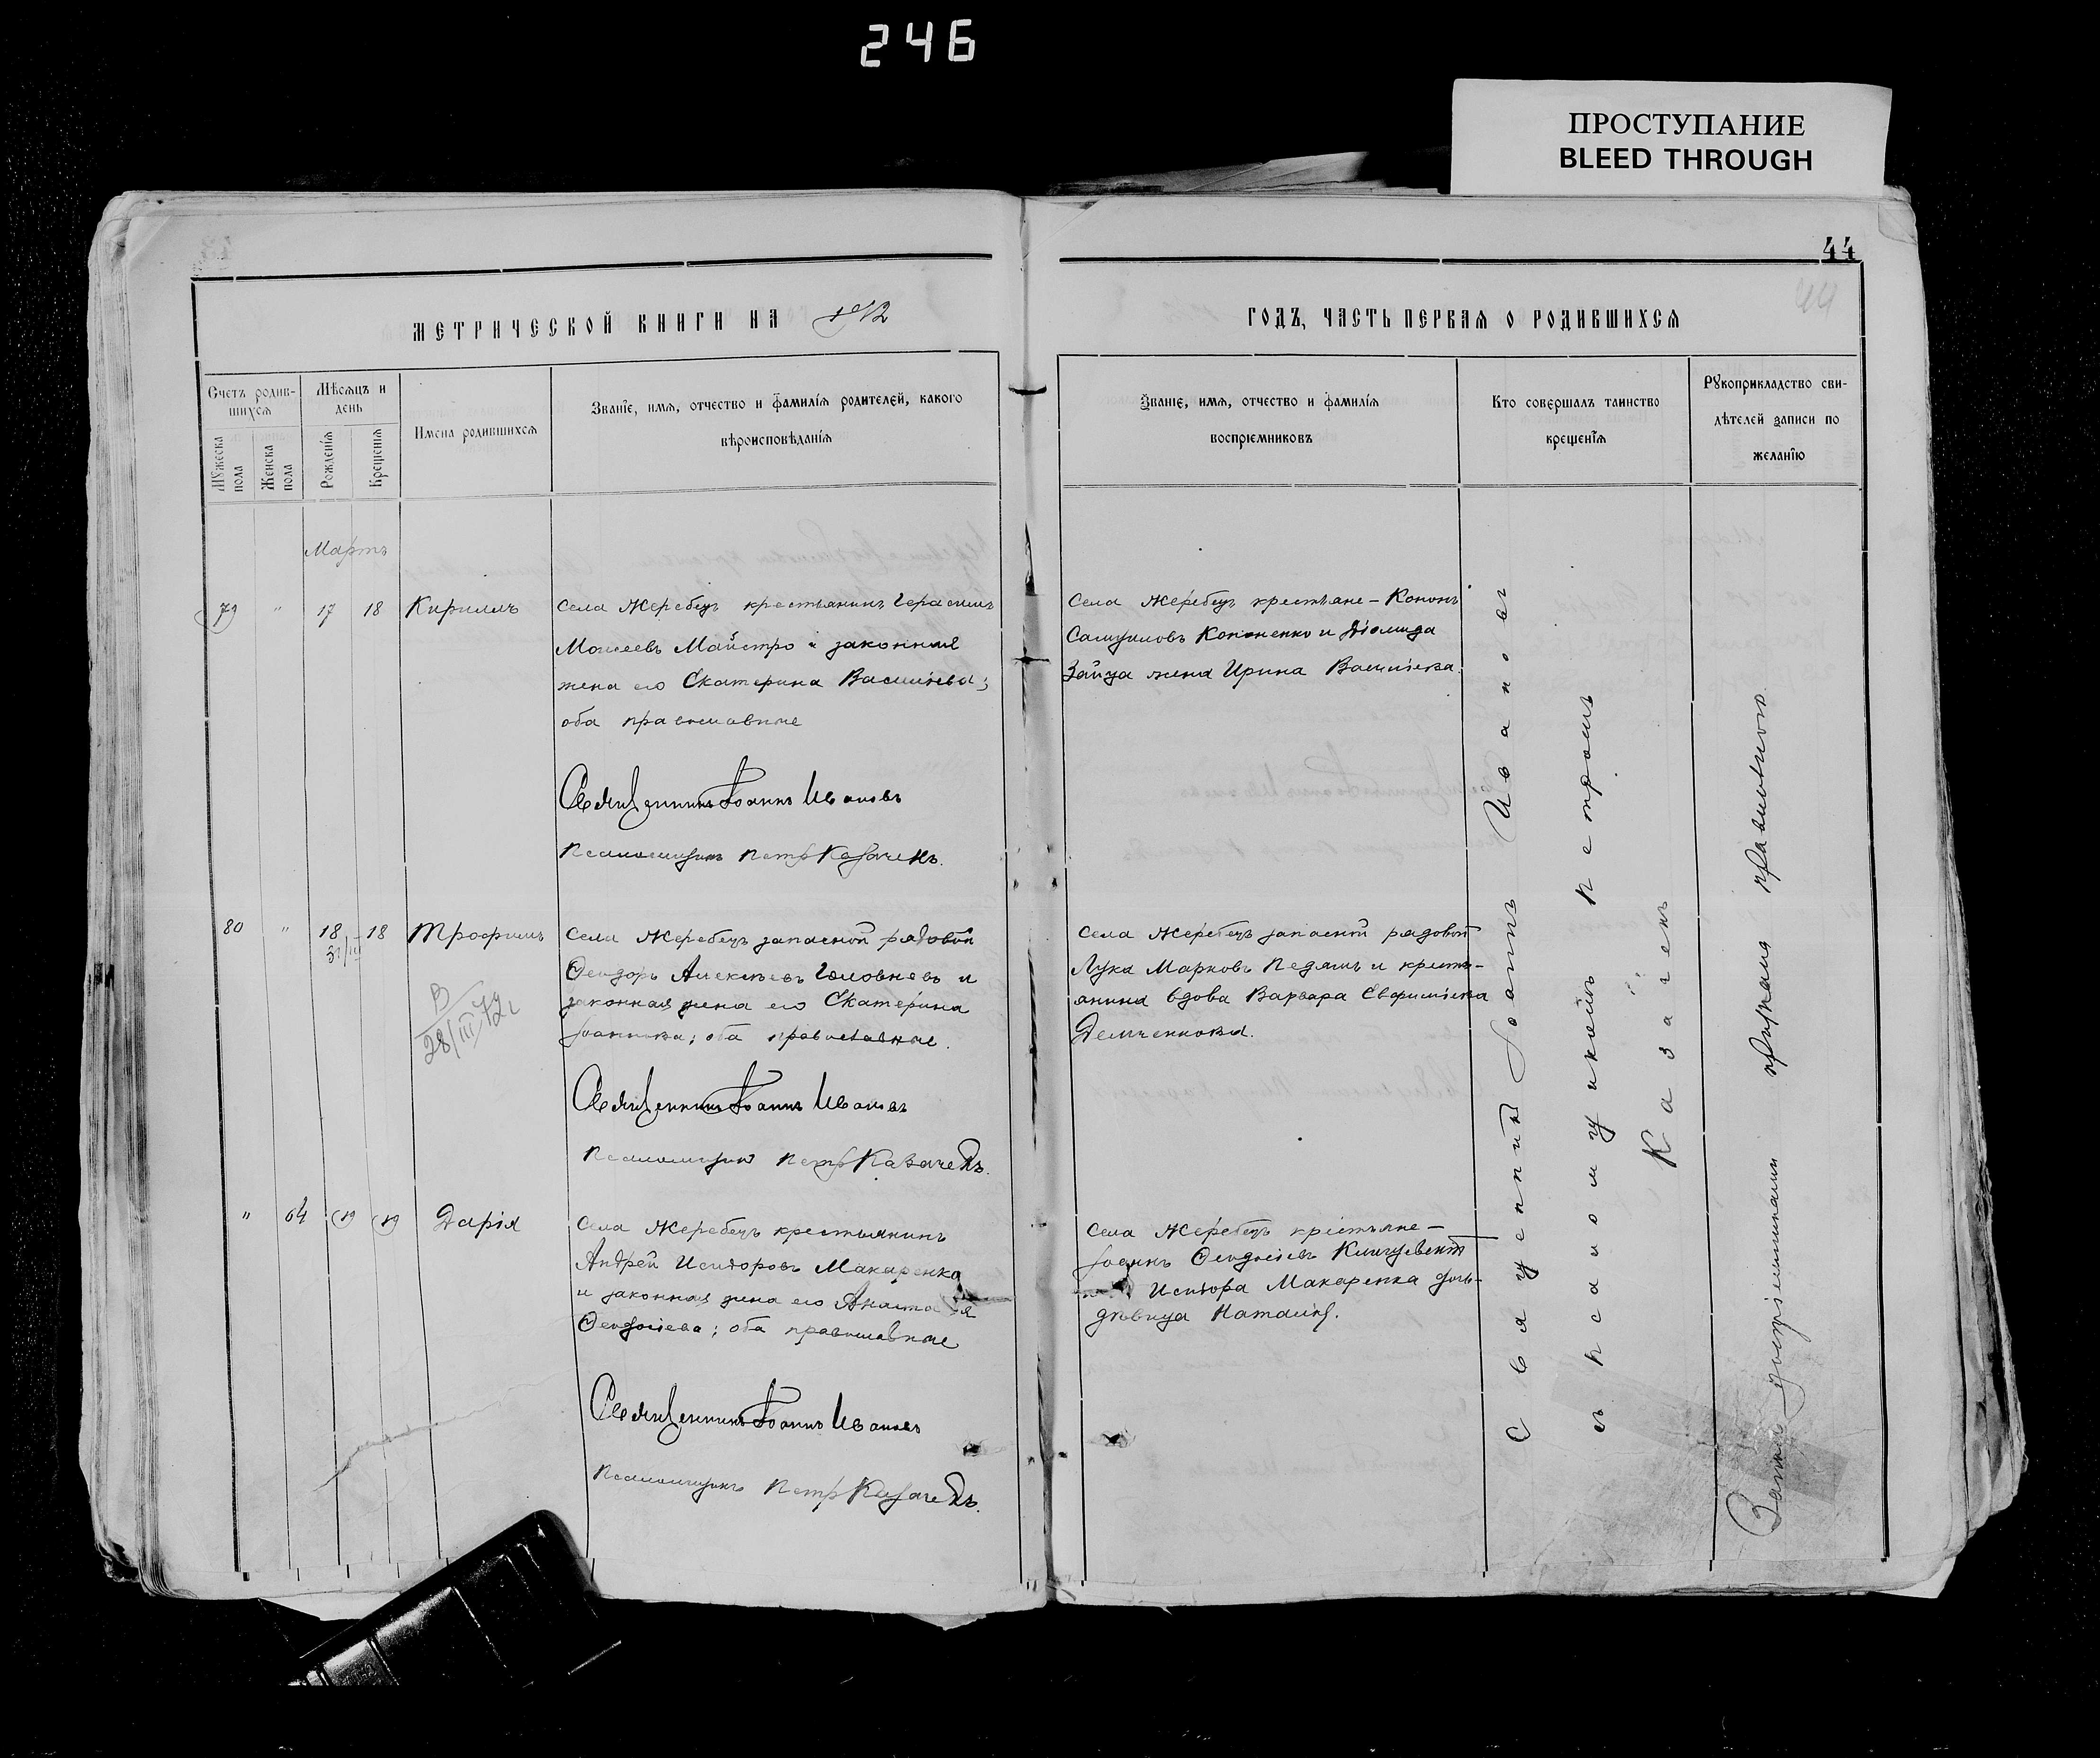 246
ПРОСТУПАНИЕ
BLEED THROUGH
44
44
МЕТРИЧЕСКОЙ КНИГИ НА 1912
ГОДЪ, ЧАСТЬ ПЕРВАЯ О РОДИВШИХСЯ
Счетъ родив-
шихся
Мѣсяцъ и
день
Мужеска
пола
Женска
пола
Рожденія
Крещенія
Имена родившихся
Званіе, имя, отчество и фамилія родителей, какого
вѣроисповѣданія
Званіе, имя, отчество и фамилія
воспріемниковъ
Кто совершалъ таинство
крещенія
Рукоприкладство сви-
дѣтелей записи по
желанію
Мартъ
79 " 17 18 Кириллъ
Села Жеребецъ крестьянинъ Герасимъ
Моисеевъ Майстро и законная
жена его Екатерина Васильева;
оба православные
Священникъ Іоаннъ Ивановъ
Псаломщикъ Петръ Казачекъ.
Села Жеребецъ крестьяне - Кононъ
Самуиловъ Кононенко и Діомида
Зайца жена Ирина Васильева.
80 " 18 18 Трофимъ
31/III
В
28/III 72
Села Жеребецъ запасной рядовой
Ѳеодоръ Алексѣевъ Головневъ и
законная жена его Екатерина
Іоаннова; оба православные.
Священникъ Іоаннъ Ивановъ
Псаломщикъ Петръ Казачекъ.
Села Жеребецъ запасной рядовой
Лука Марковъ Педяшъ и кресть-
янина вдова Варвара Евфиміева
Демченкова.
" 64 19 19 Дарія
Села Жеребецъ крестьянинъ
Андрей Исидоровъ Макаренко
и законная жена его Анастасія
Ѳеодосіева; оба православные
Священникъ Іоаннъ Ивановъ
Псаломщикъ Петръ Казачекъ.
Села Жеребецъ крестьяне -
Іоаннъ Ѳеодосіевъ
Исидора Макаренка дочь-
дѣвица Наталія.
Священникъ Іоаннъ Ивановъ
съ псаломщикомъ Петромъ
Казачекъ
Запись воспріемниками признана правильною.